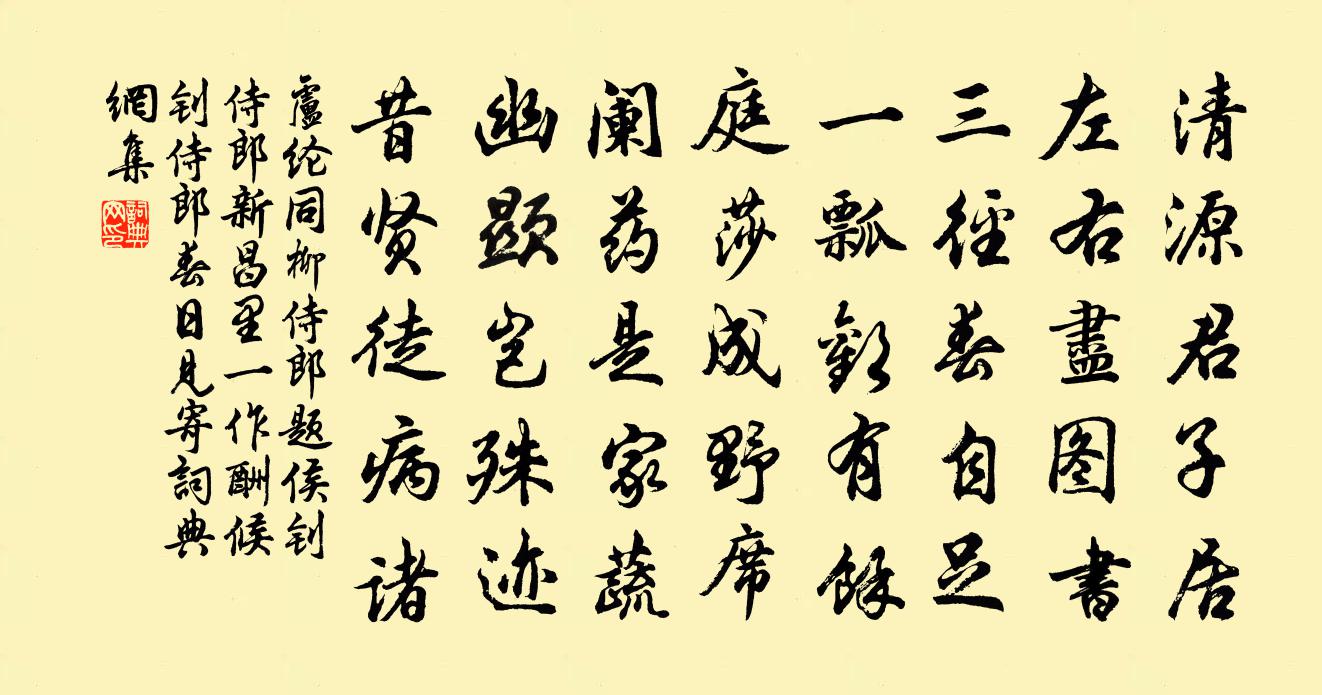 清源君子居
左右盡图書
三徑春自足
一瓢歡有餘
庭莎成野席
阑药是家蔬
幽顯岂殊迹
昔贤徒病诸
盧纶同柳侍郎题侯钊
侍郎新昌里一作酬候
钊侍郎春日見寄詞典
網集
詞典
网印